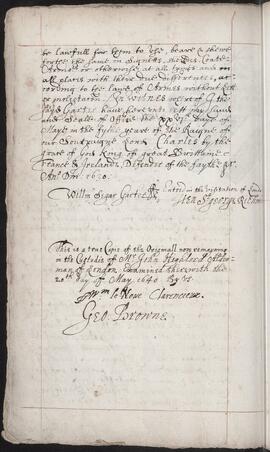 be lawfull for hym to use, beare & shewe
forthe the same in Signett, Shield, Coate-
Armor or otherwise, at all tymes and in
all places with there due differences, ac-
cording to the Lawe of Armes without lett
or molestacon. In witnes whereof I the
sayd Garter have hereunto sett my hand
and Seall of Office the day of
Maye in the fyfte yeare of the Raygne of
our Soveraygne Lord Charles by the
grace of God King of great Brittaine
France & Ireland, Defender of the fayth &c.
An. Dni. 1630.
Willm Segar Garter
Entred in the visitation of London
Hen StGeorge Richmond
This is a true Copie of the Originall now remayning
in the Custodie of Mr. John Highlord Alder-
man of London. Examined therewith the
20th Day of May 1640 By us.
Wm le Neve Clarenceux.
Geo Browne